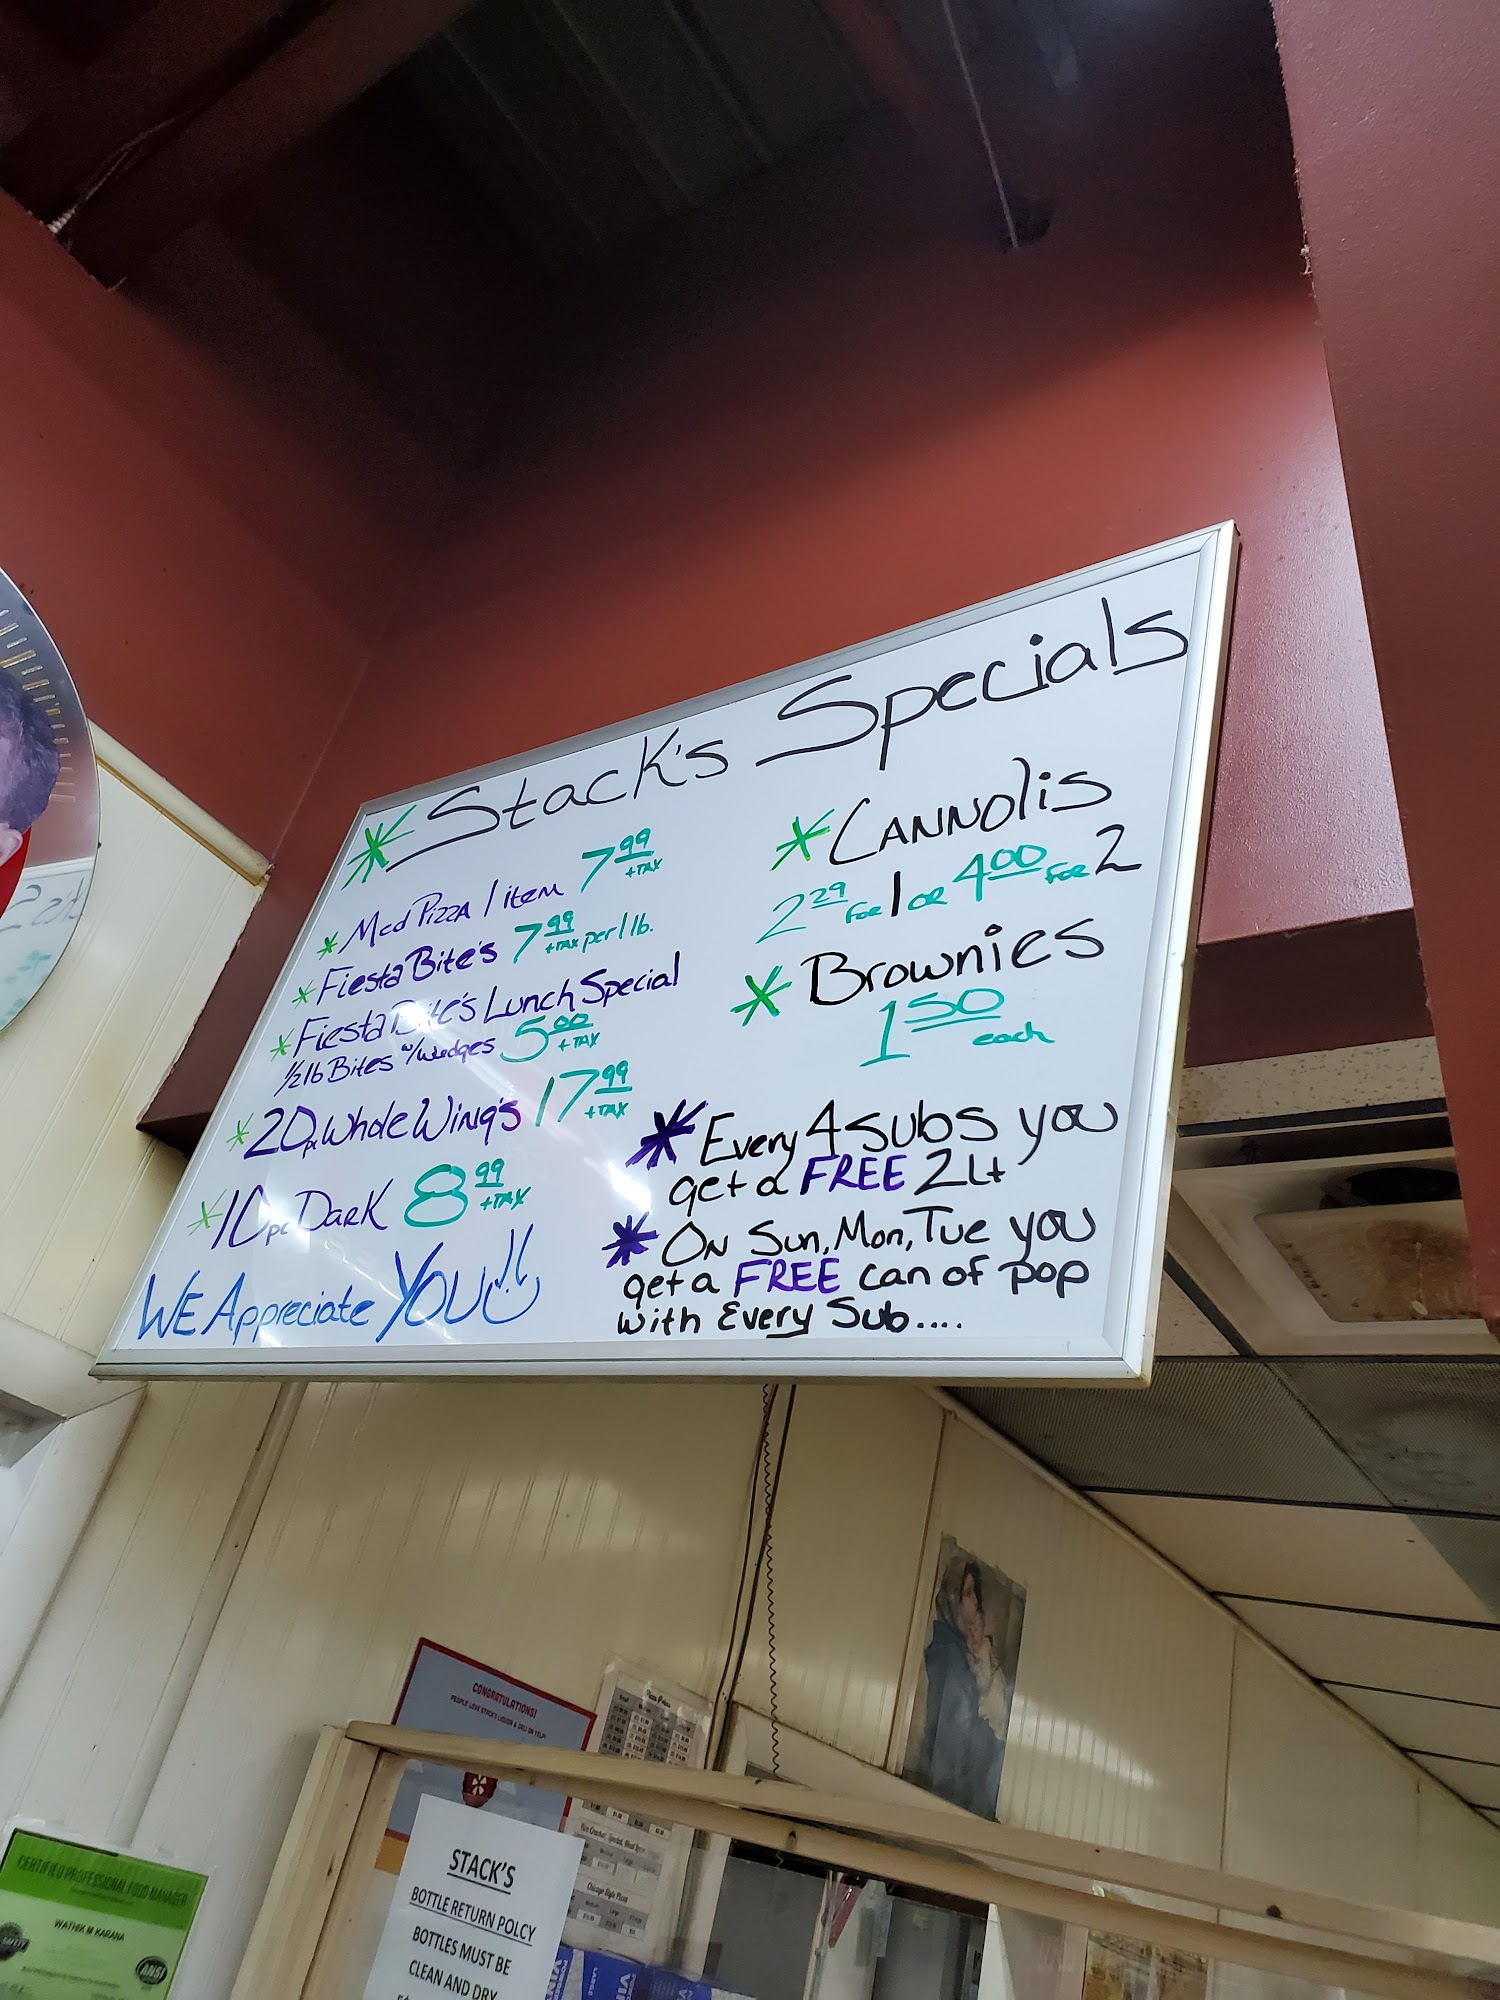 * Stack's Specials
* Med Pizza 1 item 7.99 + TAX
* Fiesta Bite's 7.99 + TAX per 1 lb.
* Fiesta Bite's Lunch Special
1/2 lb Bites w/wedges 5.00 + TAX
* 20pc Whole Wing's 17.99 + TAX
* 10pc Dark 8.99 + TAX
WE Appreciate YOU!!
* CANNOlis
2.29 for 1 or 4.00 for 2
* Brownies
1.50 each
* Every 4 subs you
get a FREE 2Lt
* ON Sun, Mon, Tue you
get a FREE can of pop
with Every Sub....
CONGRATULATIONS!
PEOPLE LOVE STACK'S LIQUOR & DELI ON YELP!
STACK'S
BOTTLE RETURN POLCY
BOTTLES MUST BE
CLEAN AND DRY
CERTIFIED PROFESSIONAL FOOD MANAGER
WATHIK M KARANA
ANSI